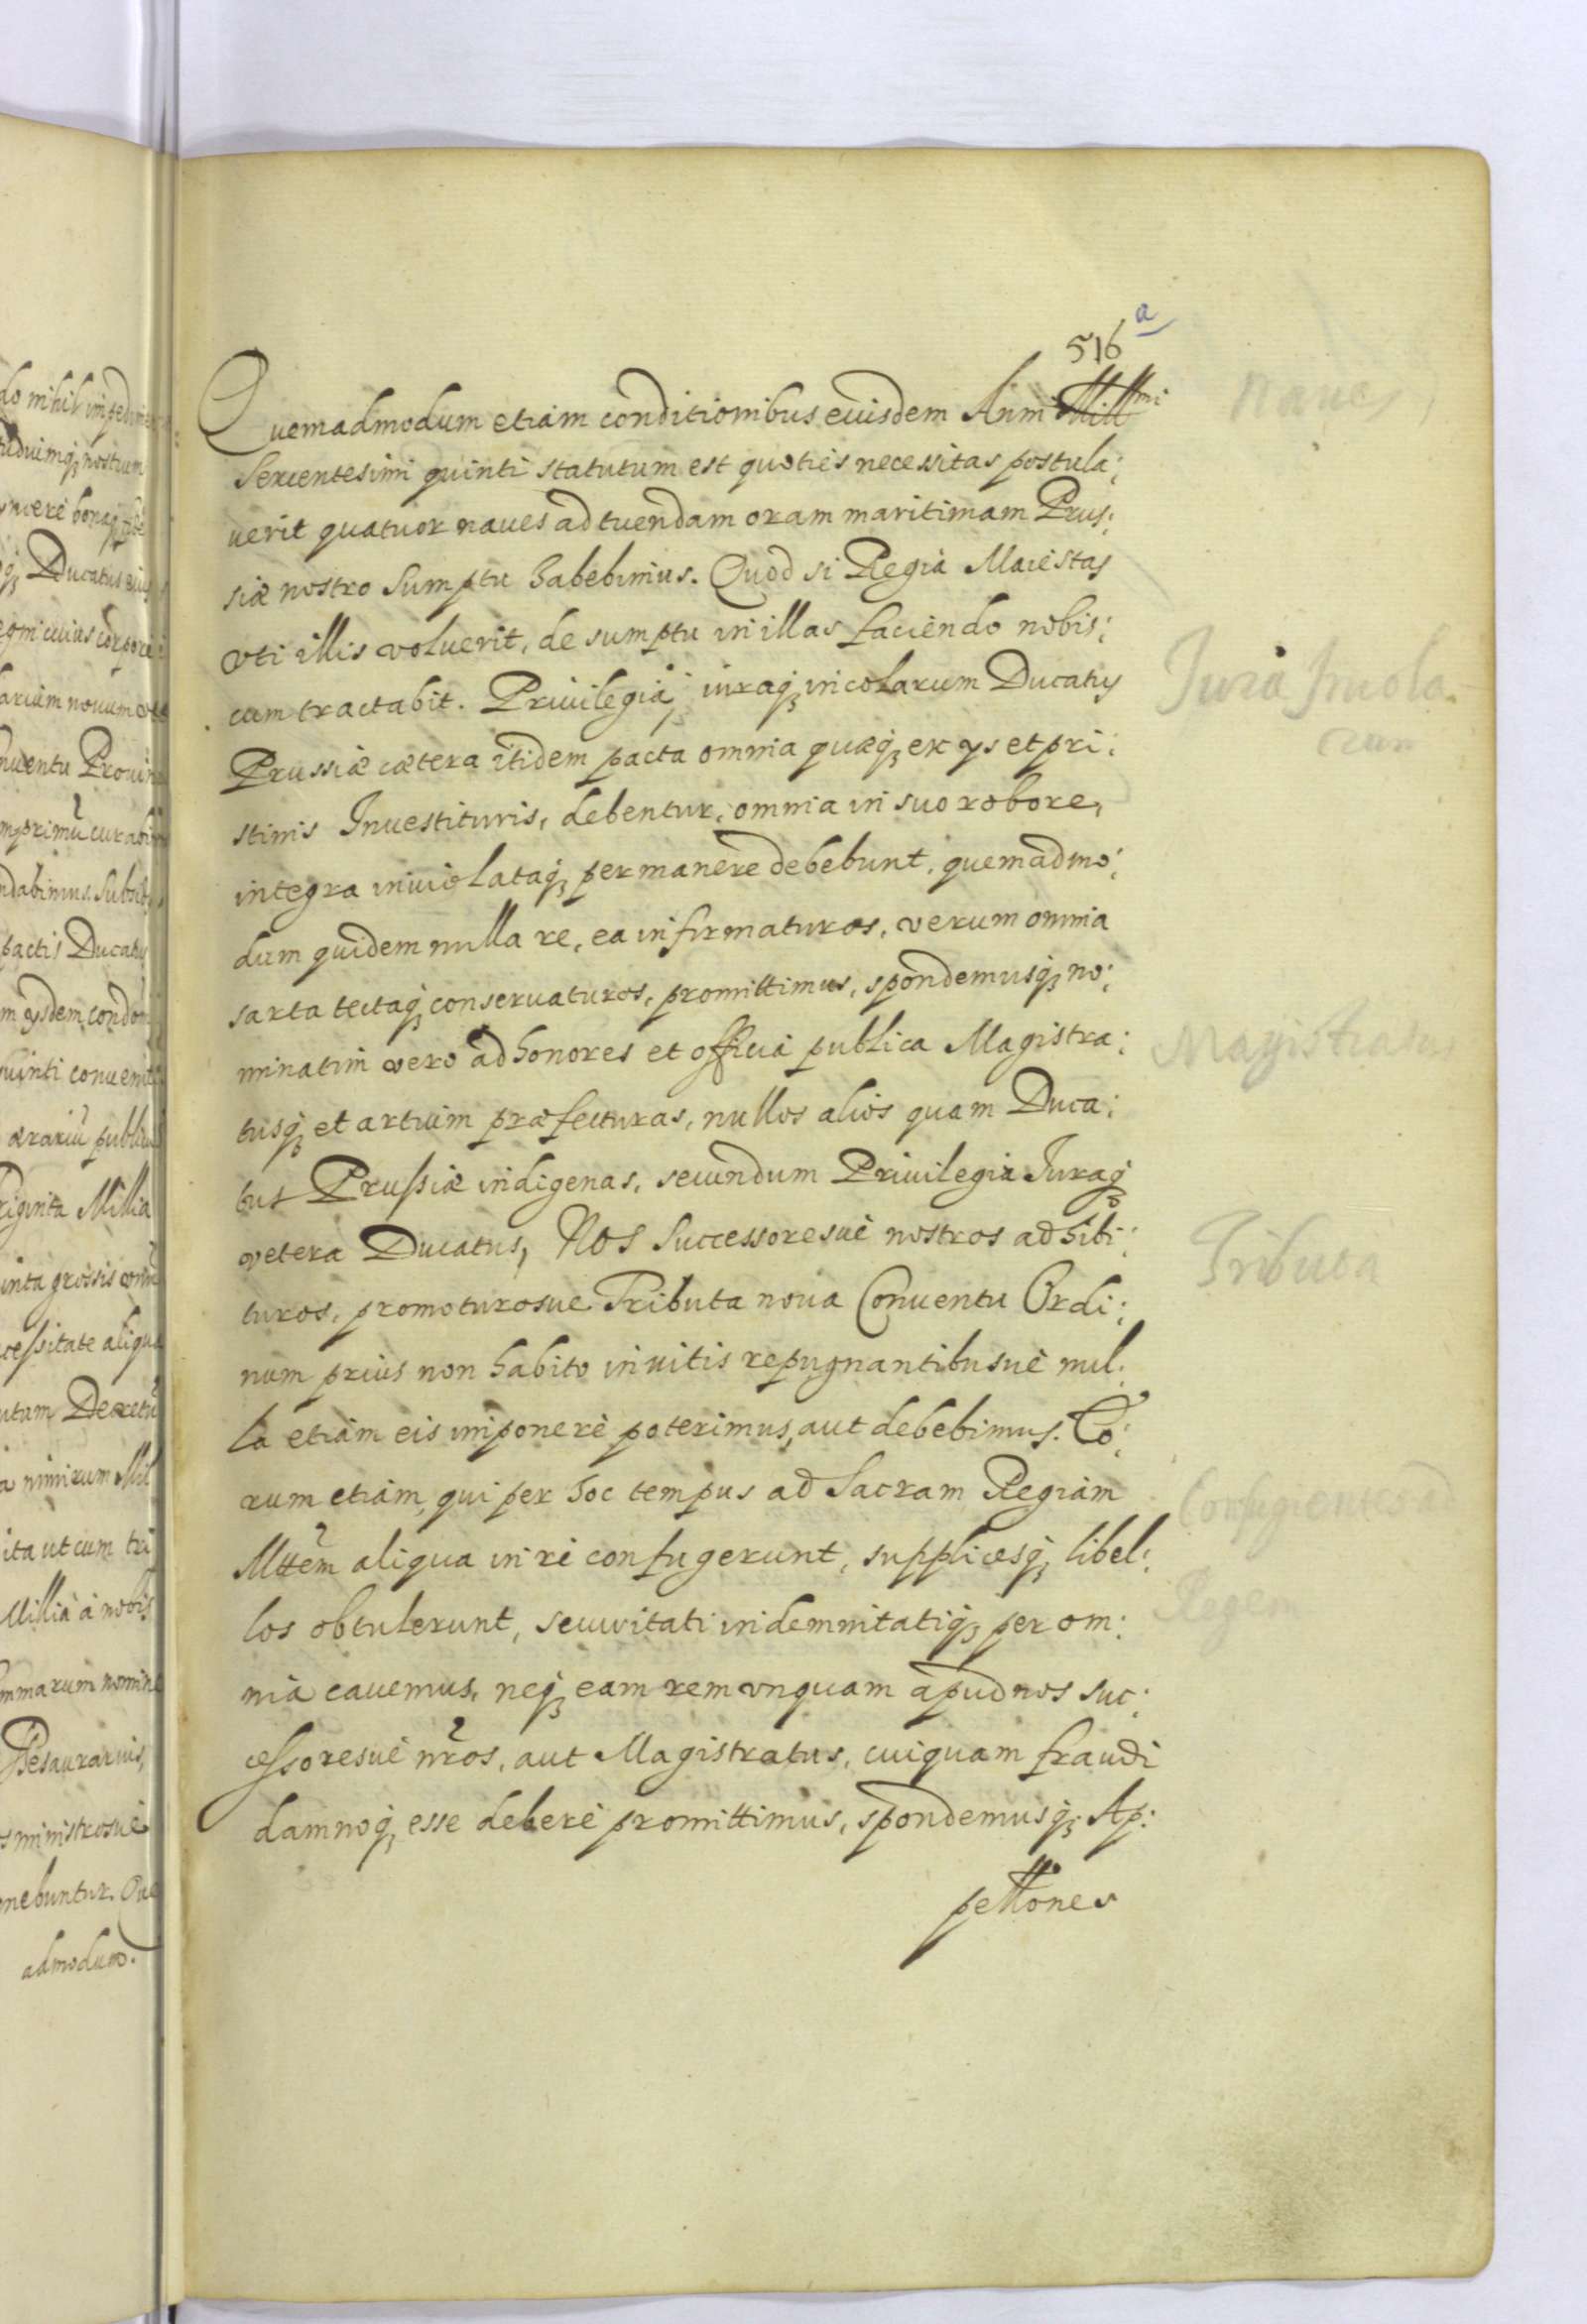 516 a
Quemadmodum etiam conditionibus euisdem Anni Mill mi
Sexcentesimi quinti statutum est quoties necessitas postula:
uerit quatuor naues ad tuendam oram maritimam Prus:
siæ nostro Sumptu habebimus. Quod si Regia Maiestas
vti illis voluerit, de sumptu in illas faciendo nobis:
cum tractabit. Priuilegia, iuraq; incolarum Ducatus
Prussiæ cætera itidem pacta omnia quæq; ex ys et pri:
stinis Inuestituris, debentur, omnia in suo robore,
integra inuiolataq; permanere debebunt, quemadmo:
dum quidem nulla re, ea infirmaturos, verum omnia
sarta tectaq; conseruaturos, promittimus, spondemusq; no:
minatim vero ad honores et officia publica Magistra:
tusq; et artium præfecturas, nullos alios quam Duca:
tus Prussiæ indigenas, secundum Priuilegia Iuraq;
vetera Ducatus, Nos Successoresuè nostros adhibi:
turos, promoturosue Tributa noua Conuentu Ordi:
num prius non habito inuitis repugnantibusuè nul:
la etiam eis imponerè poterimus, aut debebimus. Eo:
rum etiam, qui per hoc tempus ad Sacram Regiam
Mttem aliqua in re confugerunt, supplicesq; libel:
los obtulerunt, securitati indemnitatiq; per om:
nia cauemus, neq; eam rem vnquam apud nos suc:
cessoresuè nros, aut Magistratus, cuiquam fraudi
damnoq; esse deberè promittimus, spondemusq; Ap:
pellones
naues
Jura Incola
rum
Magistratus
Tributa
Confugientes ad
Regem
do nihil
nostrum
Ducatus
nouum
Ducatus
quinti conuenit
Millia
inta grossis
cessitate aliqua
ita ut cum tri
Millia à nobis
admodum.